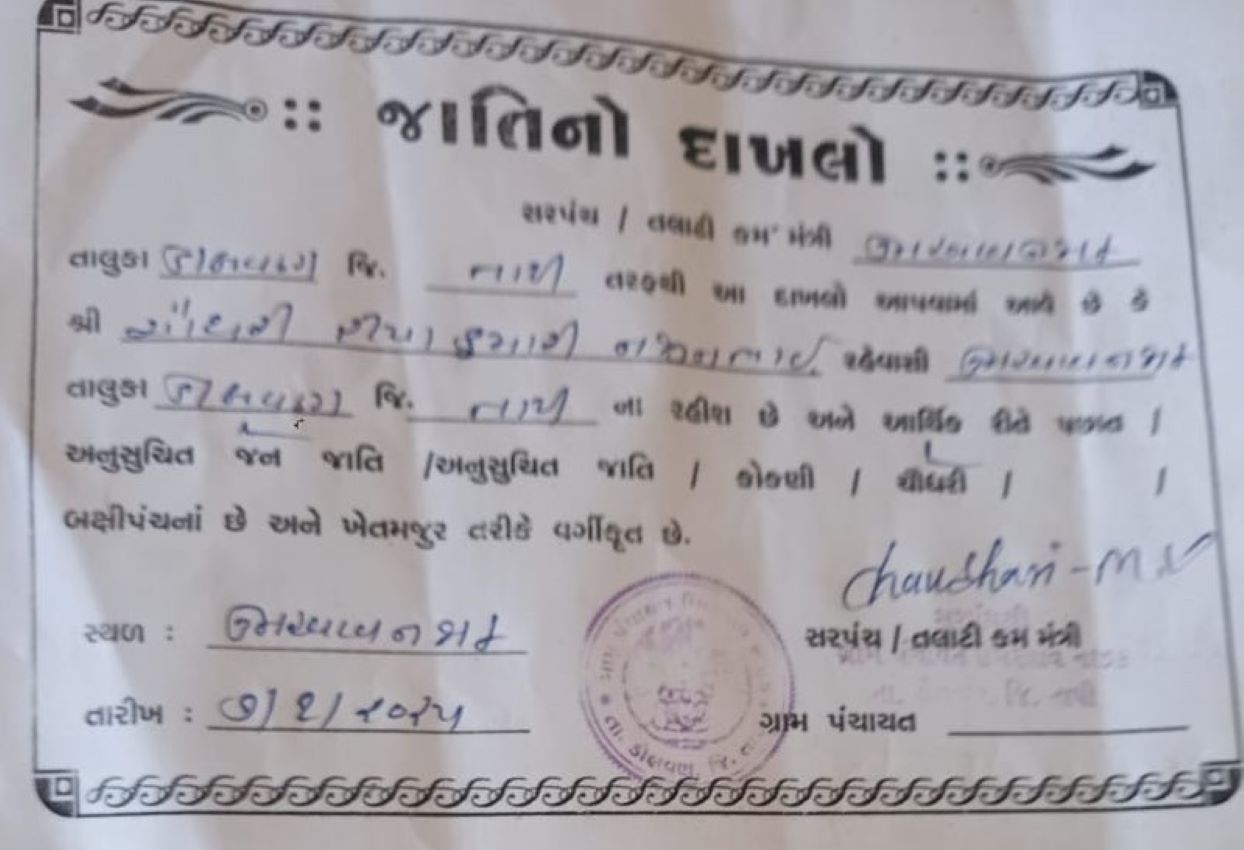 :: જાતિનો દાખલો ::
સરપંચ / તલાટી કમ મંત્રી
તાલુકા ડોલવણ જિ. તાપી તરફથી આ દાખલો આપવામાં આવે છે કે
શ્રી ચૌધરી દીયાકુમારી રહેવાસી
તાલુકા ડોલવણ જિ. તાપી ના રહીશ છે અને આર્થિક રીતે પછાત /
અનુસુચિત જન જાતિ /અનુસુચિત જાતિ / કોકણી / ચૌધરી / /
બક્ષીપંચનાં છે અને ખેતમજુર તરીકે વર્ગીકૃત છે.
Chaudhari - M.V
સ્થળ :
સરપંચ / તલાટી કમ મંત્રી
તારીખ : ૭/૨/૨૦૨૫
ગ્રામ પંચાયત
તા. ડોલવણ, જિ.